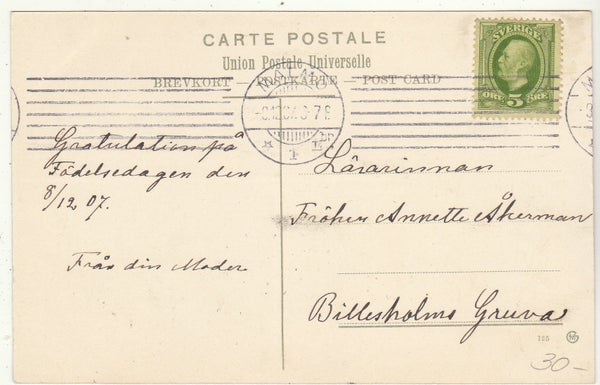 CARTE POSTALE
Union Postale Universelle
BREVKORT — POSTKARTE — POST CARD
SVERIGE
ÖRE 5 ÖRE
MALMÖ
1
Gratulation på
Födelsedagen den
8/12 07.
Från din Moder
Lärarinnan
Fröken Annette Åkerman
Billesholms Gruva
30-